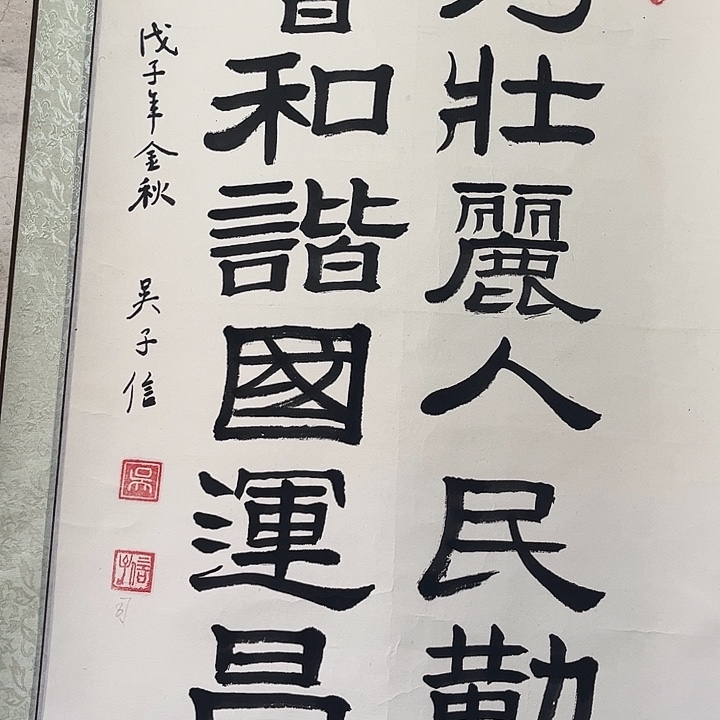 壯麗人民勤
和諧國運昌
戊子年金秋 吳子信
吳
子信